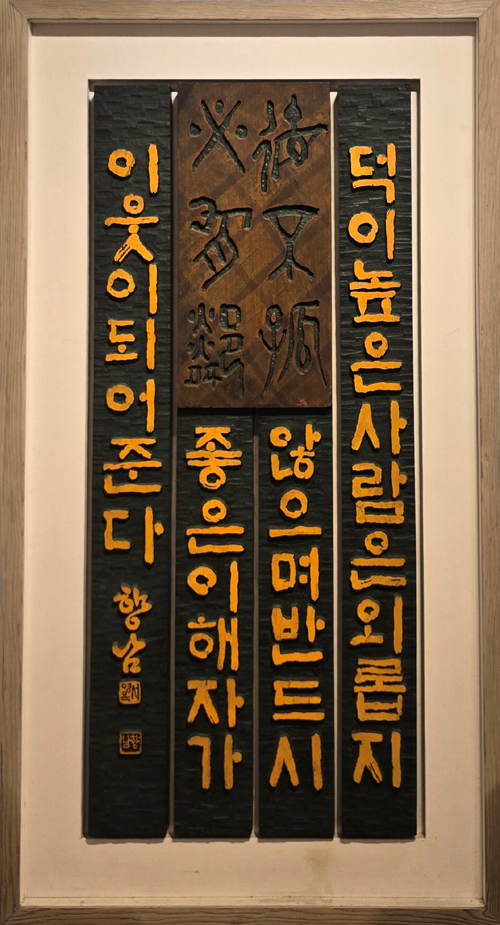 德不孤
必有鄰
덕이높은사람은외롭지
않으며반드시
좋은이해자가
이웃이되어준다
향남